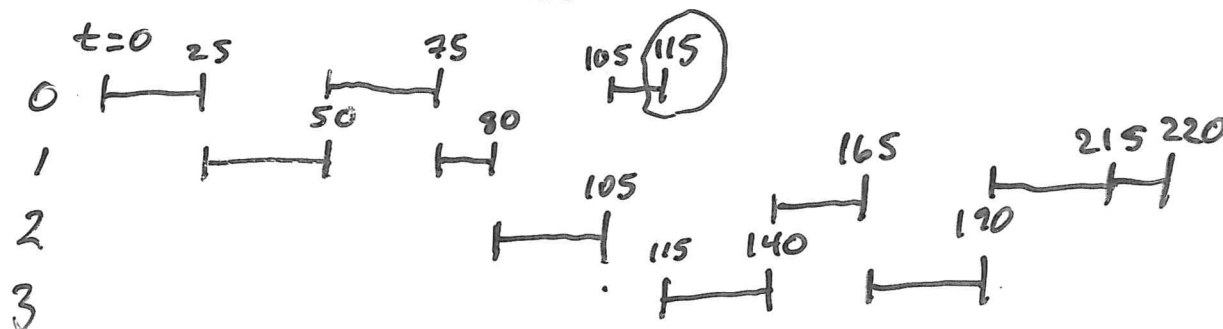 t=0 25 75 105 115
0
50 80
1
165 215 220
105
2
190
115 140
3